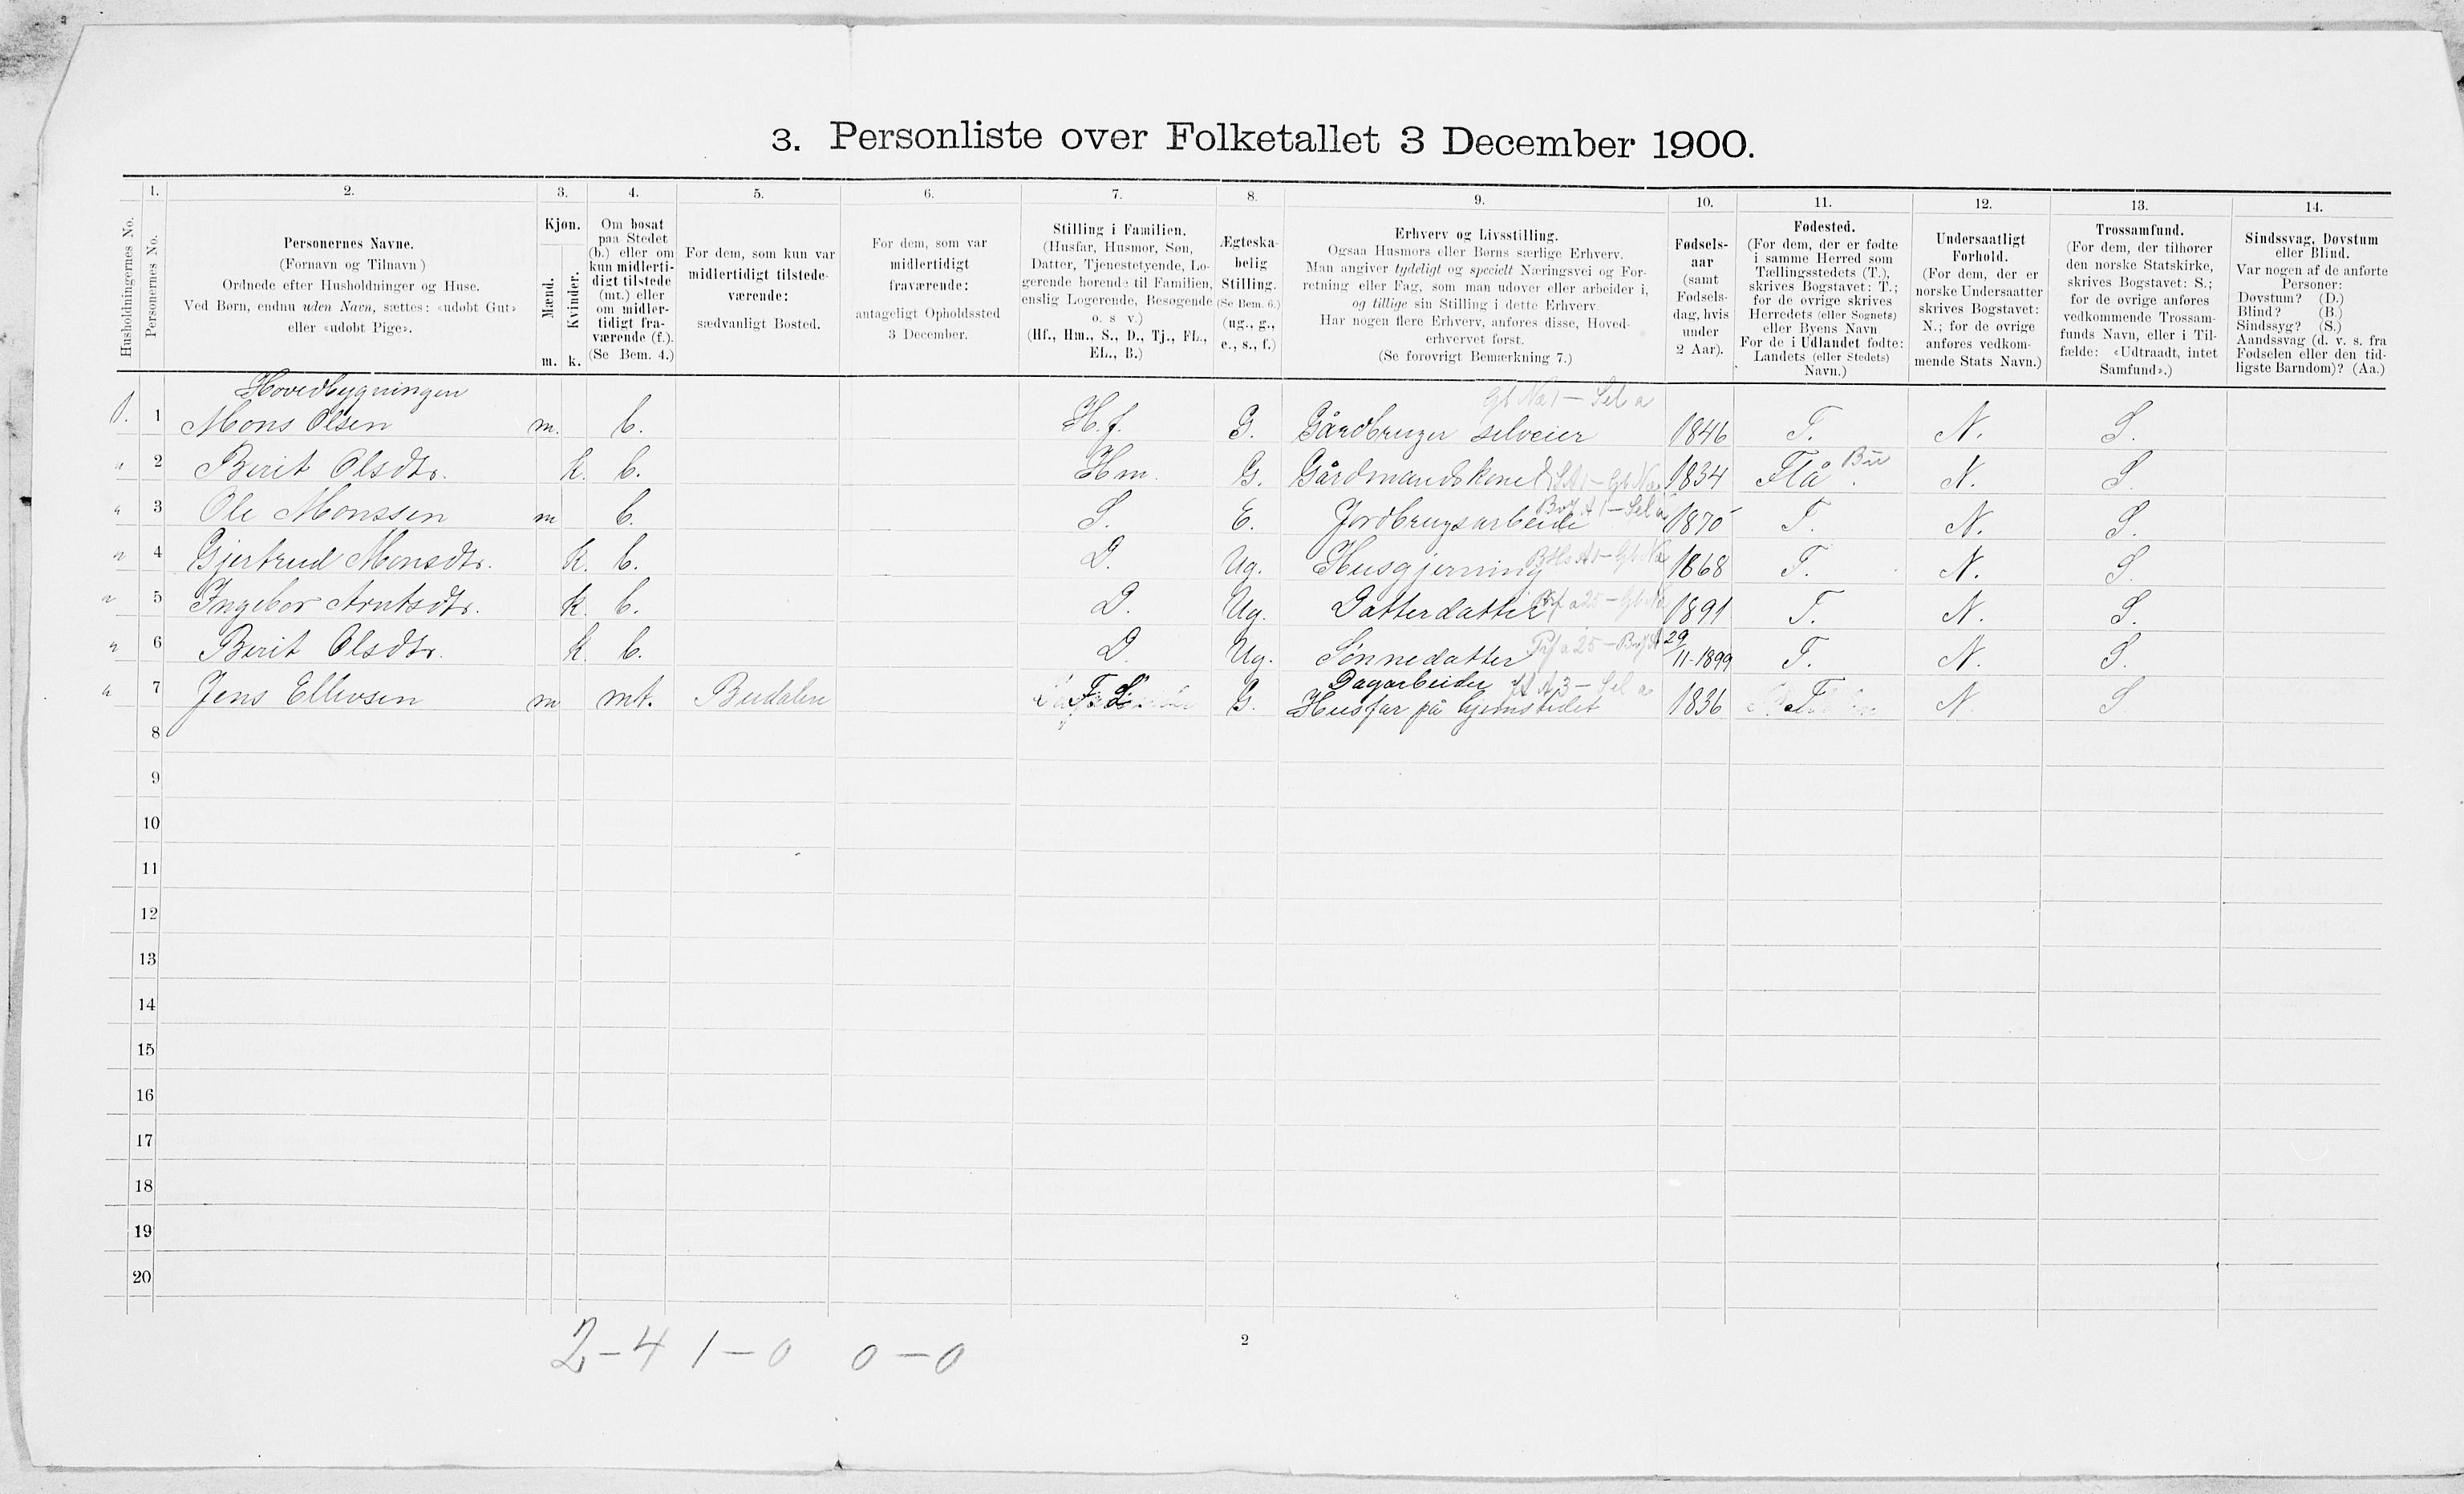 3. Personliste over Folketallet 3 December 1900.
1. 2. 3. 4. 5. 6. 7. 8. 9. 10. 11. 12. 13. 14.
Husholdningernes No.
Personernes No.
Personernes Navne.
(Fornavn og Tilnavn)
Ordnede efter Husholdninger og Huse.
Ved Børn, endnu uden Navn, sættes: «udøbt Gut»
eller «udøbt Pige».
Kjøn.
Mænd.
Kvinder.
m. k.
Om bosat
paa Stedet
(b.) eller om
kun midlerti-
digt tilstede
(mt.) eller
om midler-
tidigt fra-
værende (f.).
(Se Bem. 4.)
For dem, som kun var
midlertidigt tilstede-
værende:
sædvanligt Bosted.
For dem, som var
midlertidigt
fraværende:
antageligt Opholdssted
3 December.
Stilling i Familien.
(Husfar, Husmor, Søn,
Datter, Tjenestetyende, Lo-
gerende hørende til Familien,
enslig Logerende, Besøgende
o. s v.)
(Hf., Hm., S., D., Tj., FL.,
EL., B.)
Ægteska-
belig
Stilling.
(Se Bem. 6.)
(ug., g.,
e., s., f.)
Erhverv og Livsstilling.
Ogsaa Husmors eller Børns særlige Erhverv.
Man angiver tydeligt og specielt Næringsvei og For-
retning eller Fag, som man udøver eller arbeider i,
og tillige sin Stilling i dette Erhverv.
Har nogen flere Erhverv, anføres disse, Hoved-
erhvervet først.
(Se forøvrigt Bemærkning 7.)
Fødsels-
aar
(samt
Fødsels-
dag, hvis
under
2 Aar).
Fødested.
(For dem, der er fødte
i samme Herred som
Tællingsstedets (T.),
skrives Bogstavet: T.;
for de øvrige skrives
Herredets (eller Sognets)
eller Byens Navn
For de i Udlandet fødte:
Landets (eller Stedets)
Navn.)
Undersaatligt
Forhold.
(For dem, der er
norske Undersaatter
skrives Bogstavet:
N.; for de øvrige
anføres vedkom-
mende Stats Navn.)
Trossamfund.
(For dem, der tilhører
den norske Statskirke,
skrives Bogstavet: S.;
for de øvrige anføres
vedkommende Trossam-
funds Navn, eller i Til-
fælde: «Udtraadt, intet
Samfund».)
Sindssvag, Døvstum
eller Blind.
Var nogen af de anførte
Personer:
Døvstum? (D.)
Blind? (B.)
Sindssyg? (S.)
Aandssvag (d. v. s. fra
Fødselen eller den tid-
ligste Barndom)? (Aa.)
Hovedbygningen
1. 1 Mons Olsen m. b. H.f. G. Gårdbruger selveier 1846 T. N. S.
" 2 Berit Olsdtr. k. b. Hm. G. Gårdmandskone 1834 Flå. Bu N. S.
" 3 Ole Monssen m b. S. E. Jordbrugsarbeide 1870 T. N. S.
" 4 Gjertrud Monsdtr. k. b. D. Ug. Husgjerning 1868 T. N. S.
" 5 Ingebor Arntsdtr. k. b. D. Ug. Datterdatter 1891 T. N. S.
" 6 Berit Olsdtr. k. b. D. Ug. Sönnedatter 29/11-1899 T. N. S.
" 7 Jens Ellevsen m mt. Budalen F. L. G. Dagarbeider
Husfar på hjemstedet 1836 T N. S
8
9
10
11
12
13
14
15
16
17
18
19
20
2-4 1-0 0-0
2